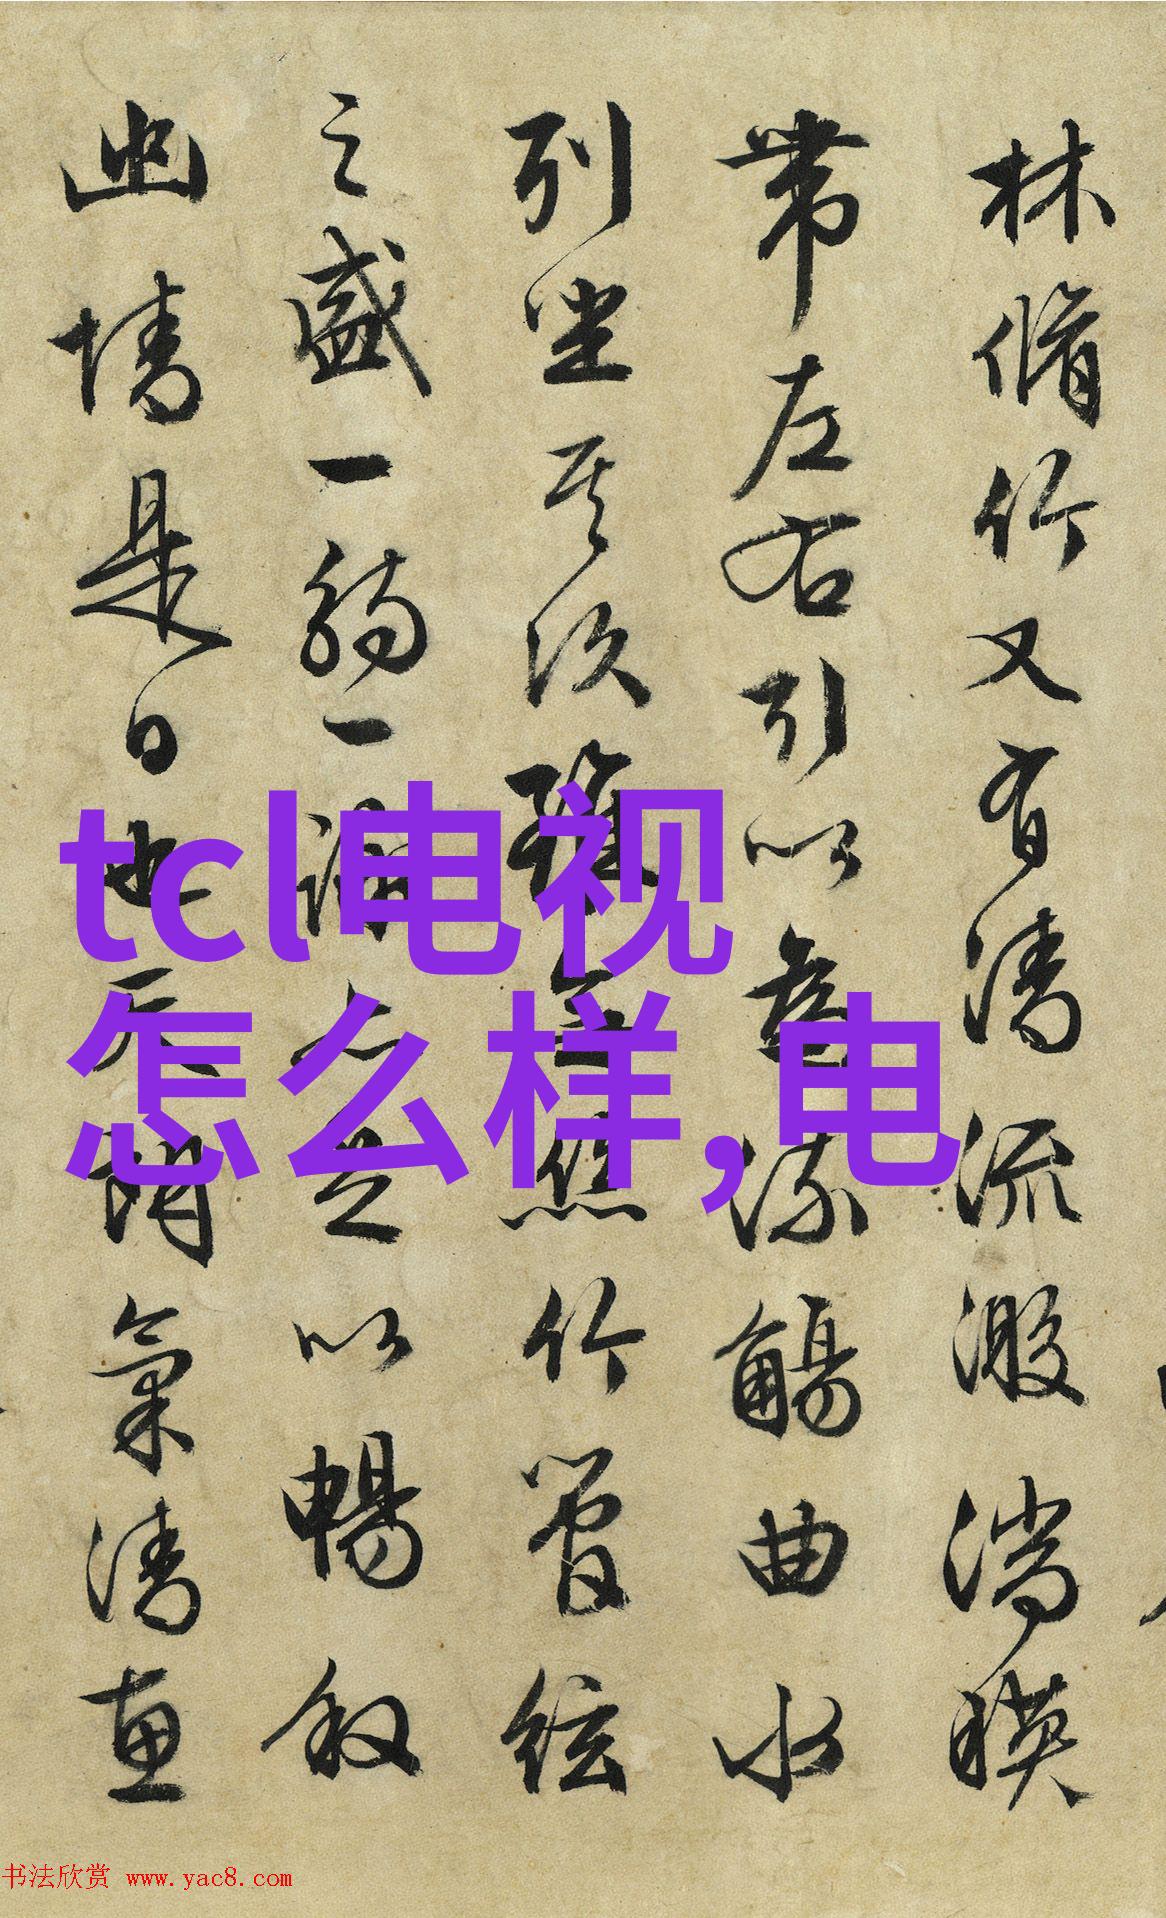 林脩竹又有清流激湍暎
帶左右引以為流觴曲水
列坐其次雖無絲竹管弦
之盛一觴一詠亦足以暢敘
幽情是日也天朗氣清惠
tcl电视
怎么样,电
书法欣赏 www.yac8.com